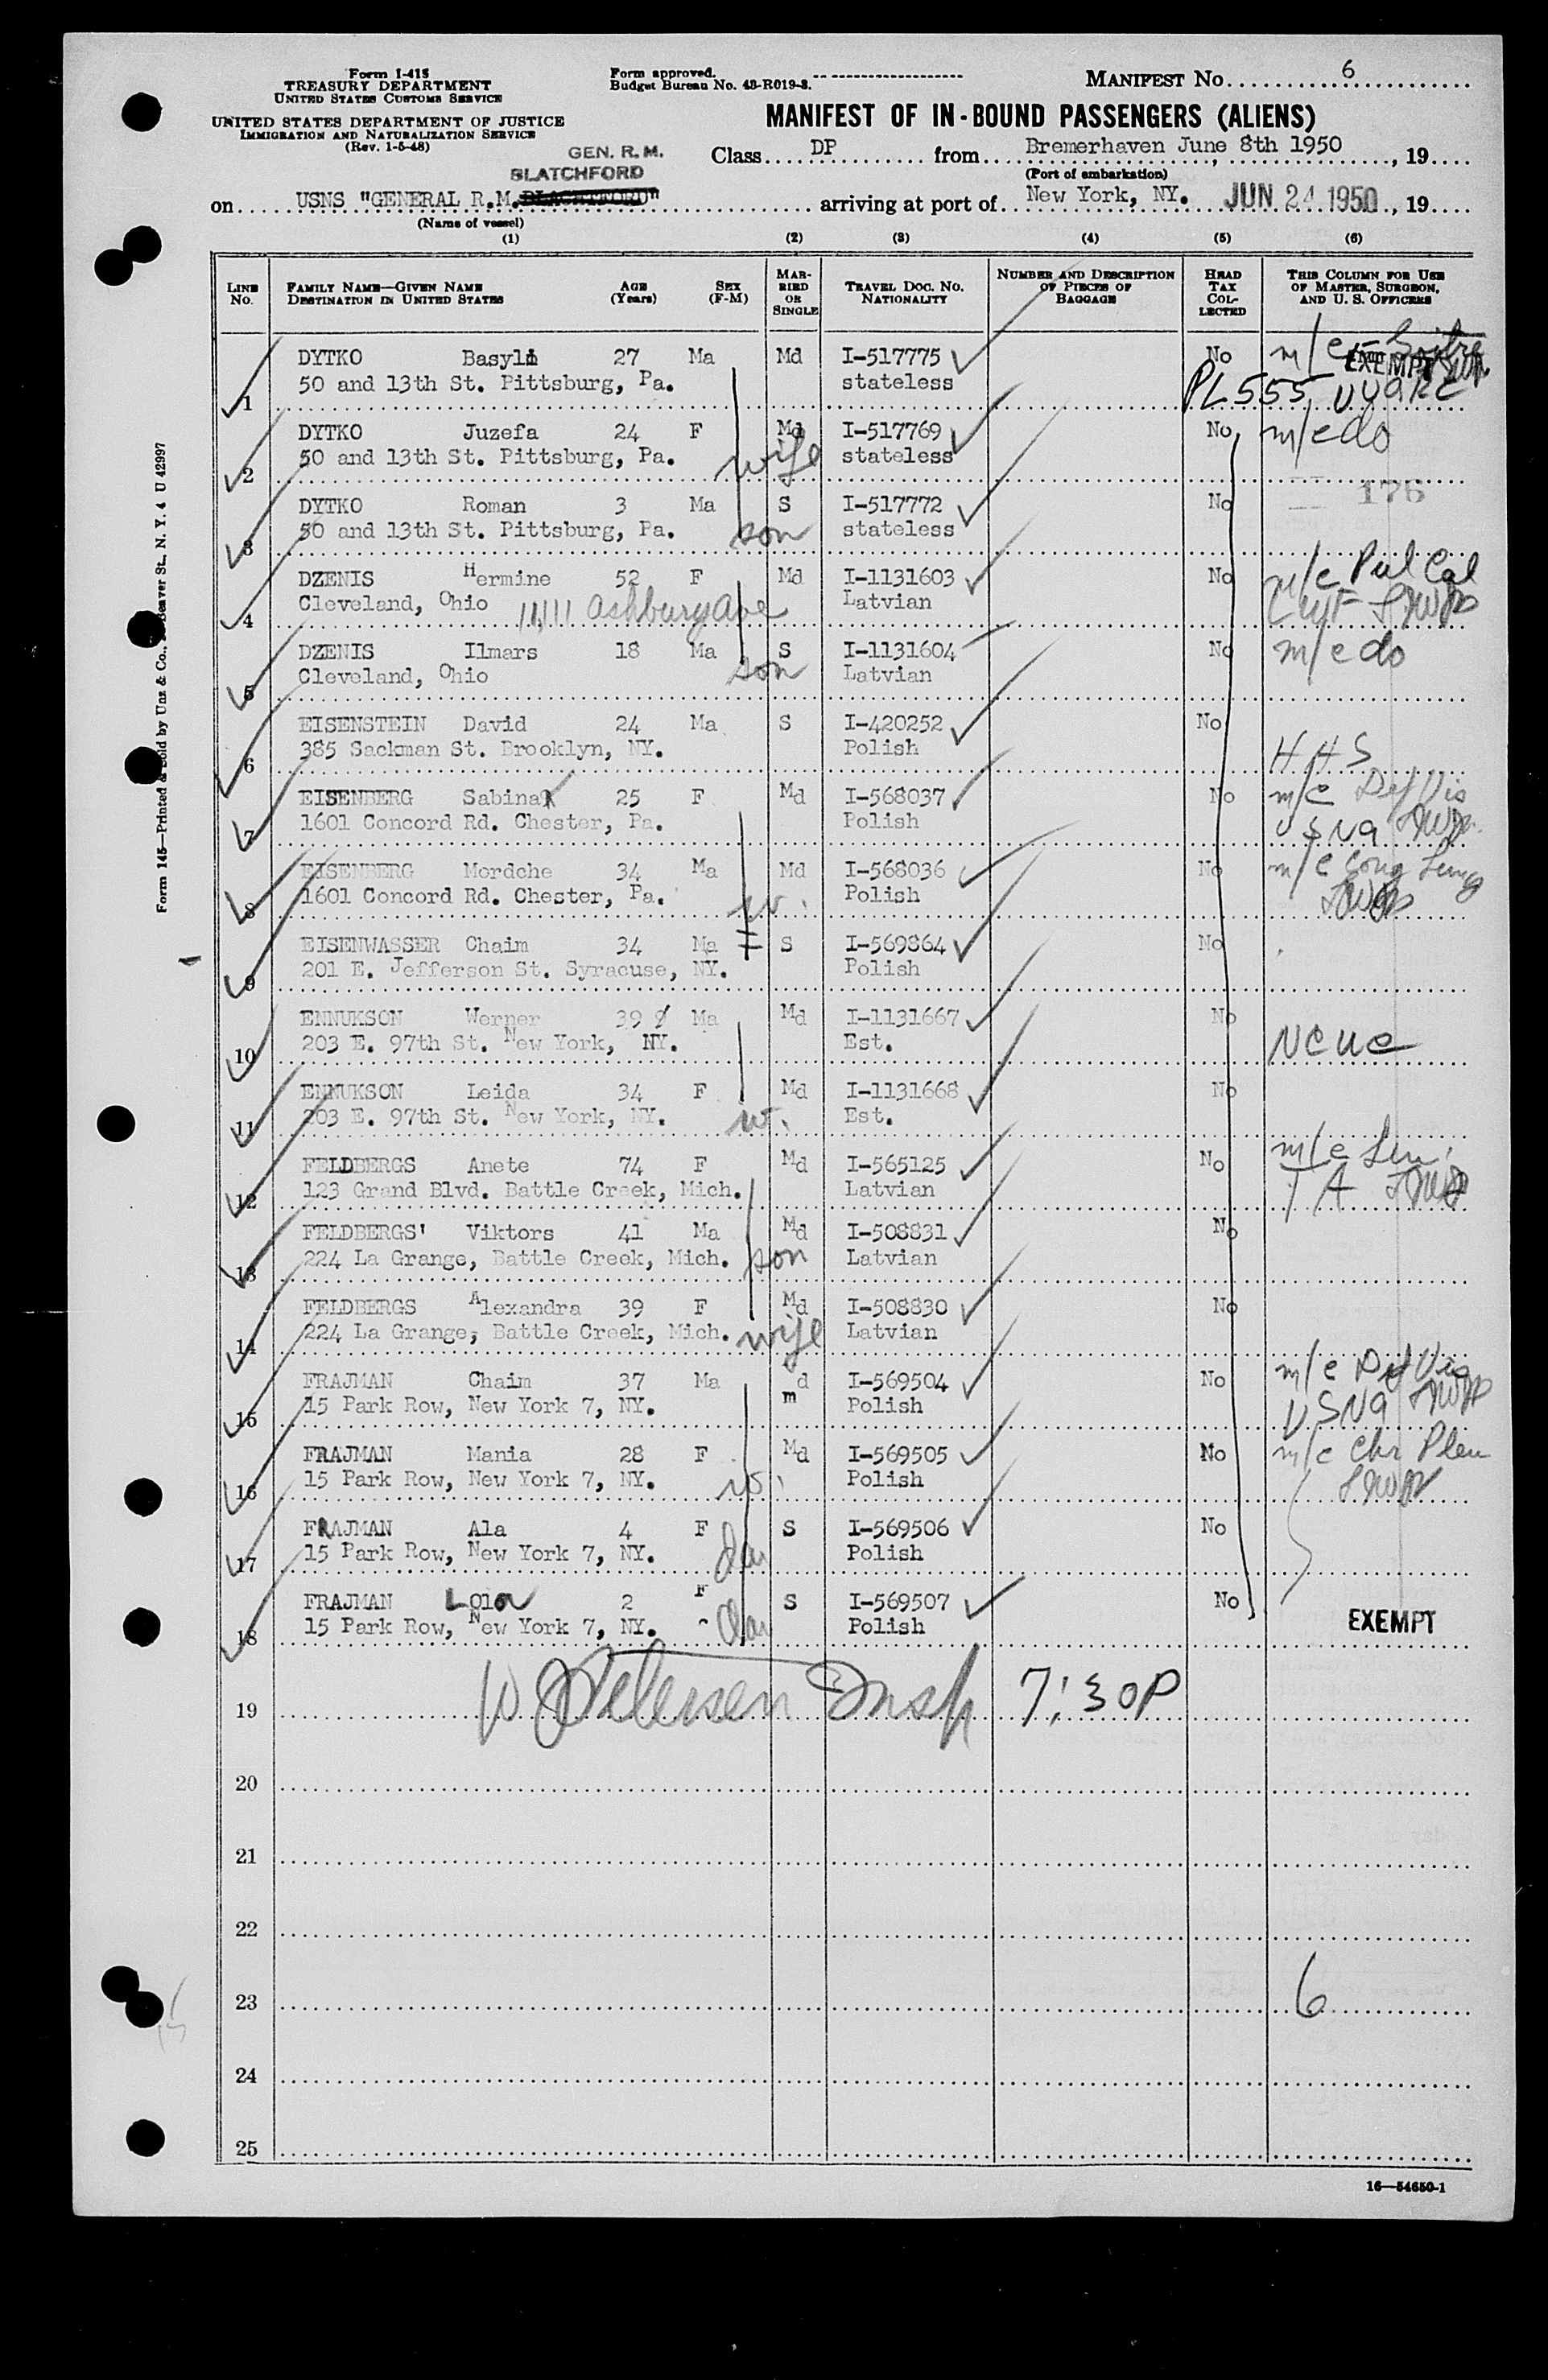 Form I-415
TREASURY DEPARTMENT
UNITED STATES CUSTOMS SERVICE
UNITED STATES DEPARTMENT OF JUSTICE
IMMIGRATION AND NATURALIZATION SERVICE
(Rev. 1-5-48)
Form approved.
Budget Bureau No. 43-R019-3.
MANIFEST No. 6
MANIFEST OF IN-BOUND PASSENGERS (ALIENS)
GEN. R. M. BLATCHFORD
Class DP from Bremerhaven June 8th 1950, 19
(Port of embarkation)
on USNS "GENERAL R.M. arriving at port of New York, NY. JUN 24 1950, 19
(Name of vessel)
(1) (2) (3) (4) (5) (6)
LINE No. FAMILY NAME—GIVEN NAME DESTINATION IN UNITED STATES AGE (Years) SEX (F-M) MARRIED OR SINGLE TRAVEL DOC. NO. NATIONALITY NUMBER AND DESCRIPTION OF PIECES OF BAGGAGE HEAD TAX COLLECTED THIS COLUMN FOR USE OF MASTER, SURGEON, AND U. S. OFFICERS
DYTKO Basyli 27 Ma Md I-517775 No m/c EXEMPT
1 50 and 13th St. Pittsburg, Pa. stateless PL555
DYTKO Juzefa 24 F Md I-517769 No m/c do
2 50 and 13th St. Pittsburg, Pa. wife stateless
176
DYTKO Roman 3 Ma S I-517772 No
3 50 and 13th St. Pittsburg, Pa. son stateless
DZENIS Hermine 52 F Md I-1131603 No m/c Pul Cal
4 Cleveland, Ohio 11111 Ashbury Ave Latvian
DZENIS Ilmars 18 Ma S I-1131604 No m/c do
5 Cleveland, Ohio son Latvian
EISENSTEIN David 24 Ma S I-420252 No
6 385 Sackman St. Brooklyn, NY. Polish
EISENBERG Sabina 25 F Md I-568037 No m/c Def Vis
7 1601 Concord Rd. Chester, Pa. Polish USNA
EISENBERG Mordche 34 Ma Md I-568036 No m/c
8 1601 Concord Rd. Chester, Pa. w. Polish
EISENWASSER Chaim 34 Ma S I-569864 No
9 201 E. Jefferson St. Syracuse, NY. Polish
ENNUKSON Werner 39 Ma Md I-1131667 No
10 203 E. 97th St. New York, NY. Est.
ENNUKSON Leida 34 F Md I-1131668 No
11 203 E. 97th St. New York, NY. w. Est.
FELDBERGS Anete 74 F Md I-565125 No m/c Sen
12 123 Grand Blvd. Battle Creek, Mich. Latvian
FELDBERGS' Viktors 41 Ma Md I-508831 No
13 224 La Grange, Battle Creek, Mich. son Latvian
FELDBERGS Alexandra 39 F Md I-508830 No
14 224 La Grange, Battle Creek, Mich. wife Latvian
FRAJMAN Chaim 37 Ma md I-569504 No m/c Def Vis
15 15 Park Row, New York 7, NY. Polish USNA
FRAJMAN Mania 28 F Md I-569505 No m/c Chr Pleu
16 15 Park Row, New York 7, NY. w. Polish
FRAJMAN Ala 4 F S I-569506 No
17 15 Park Row, New York 7, NY. dau Polish
FRAJMAN Lola 2 F S I-569507 No
18 15 Park Row, New York 7, NY. dau Polish EXEMPT
19 Petersen Insp 7:30P
20
21
22
23 6
24
25
16—54650-1